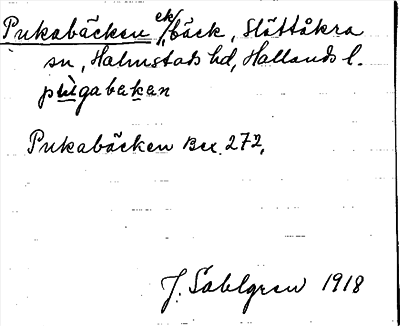 Pukabäcken ek/bäck, Slättåkra
sn, Halmstads hd, Hallands l.
pùgabekan
Pukabäcken Bex. 272.
J. Sahlgren 1918